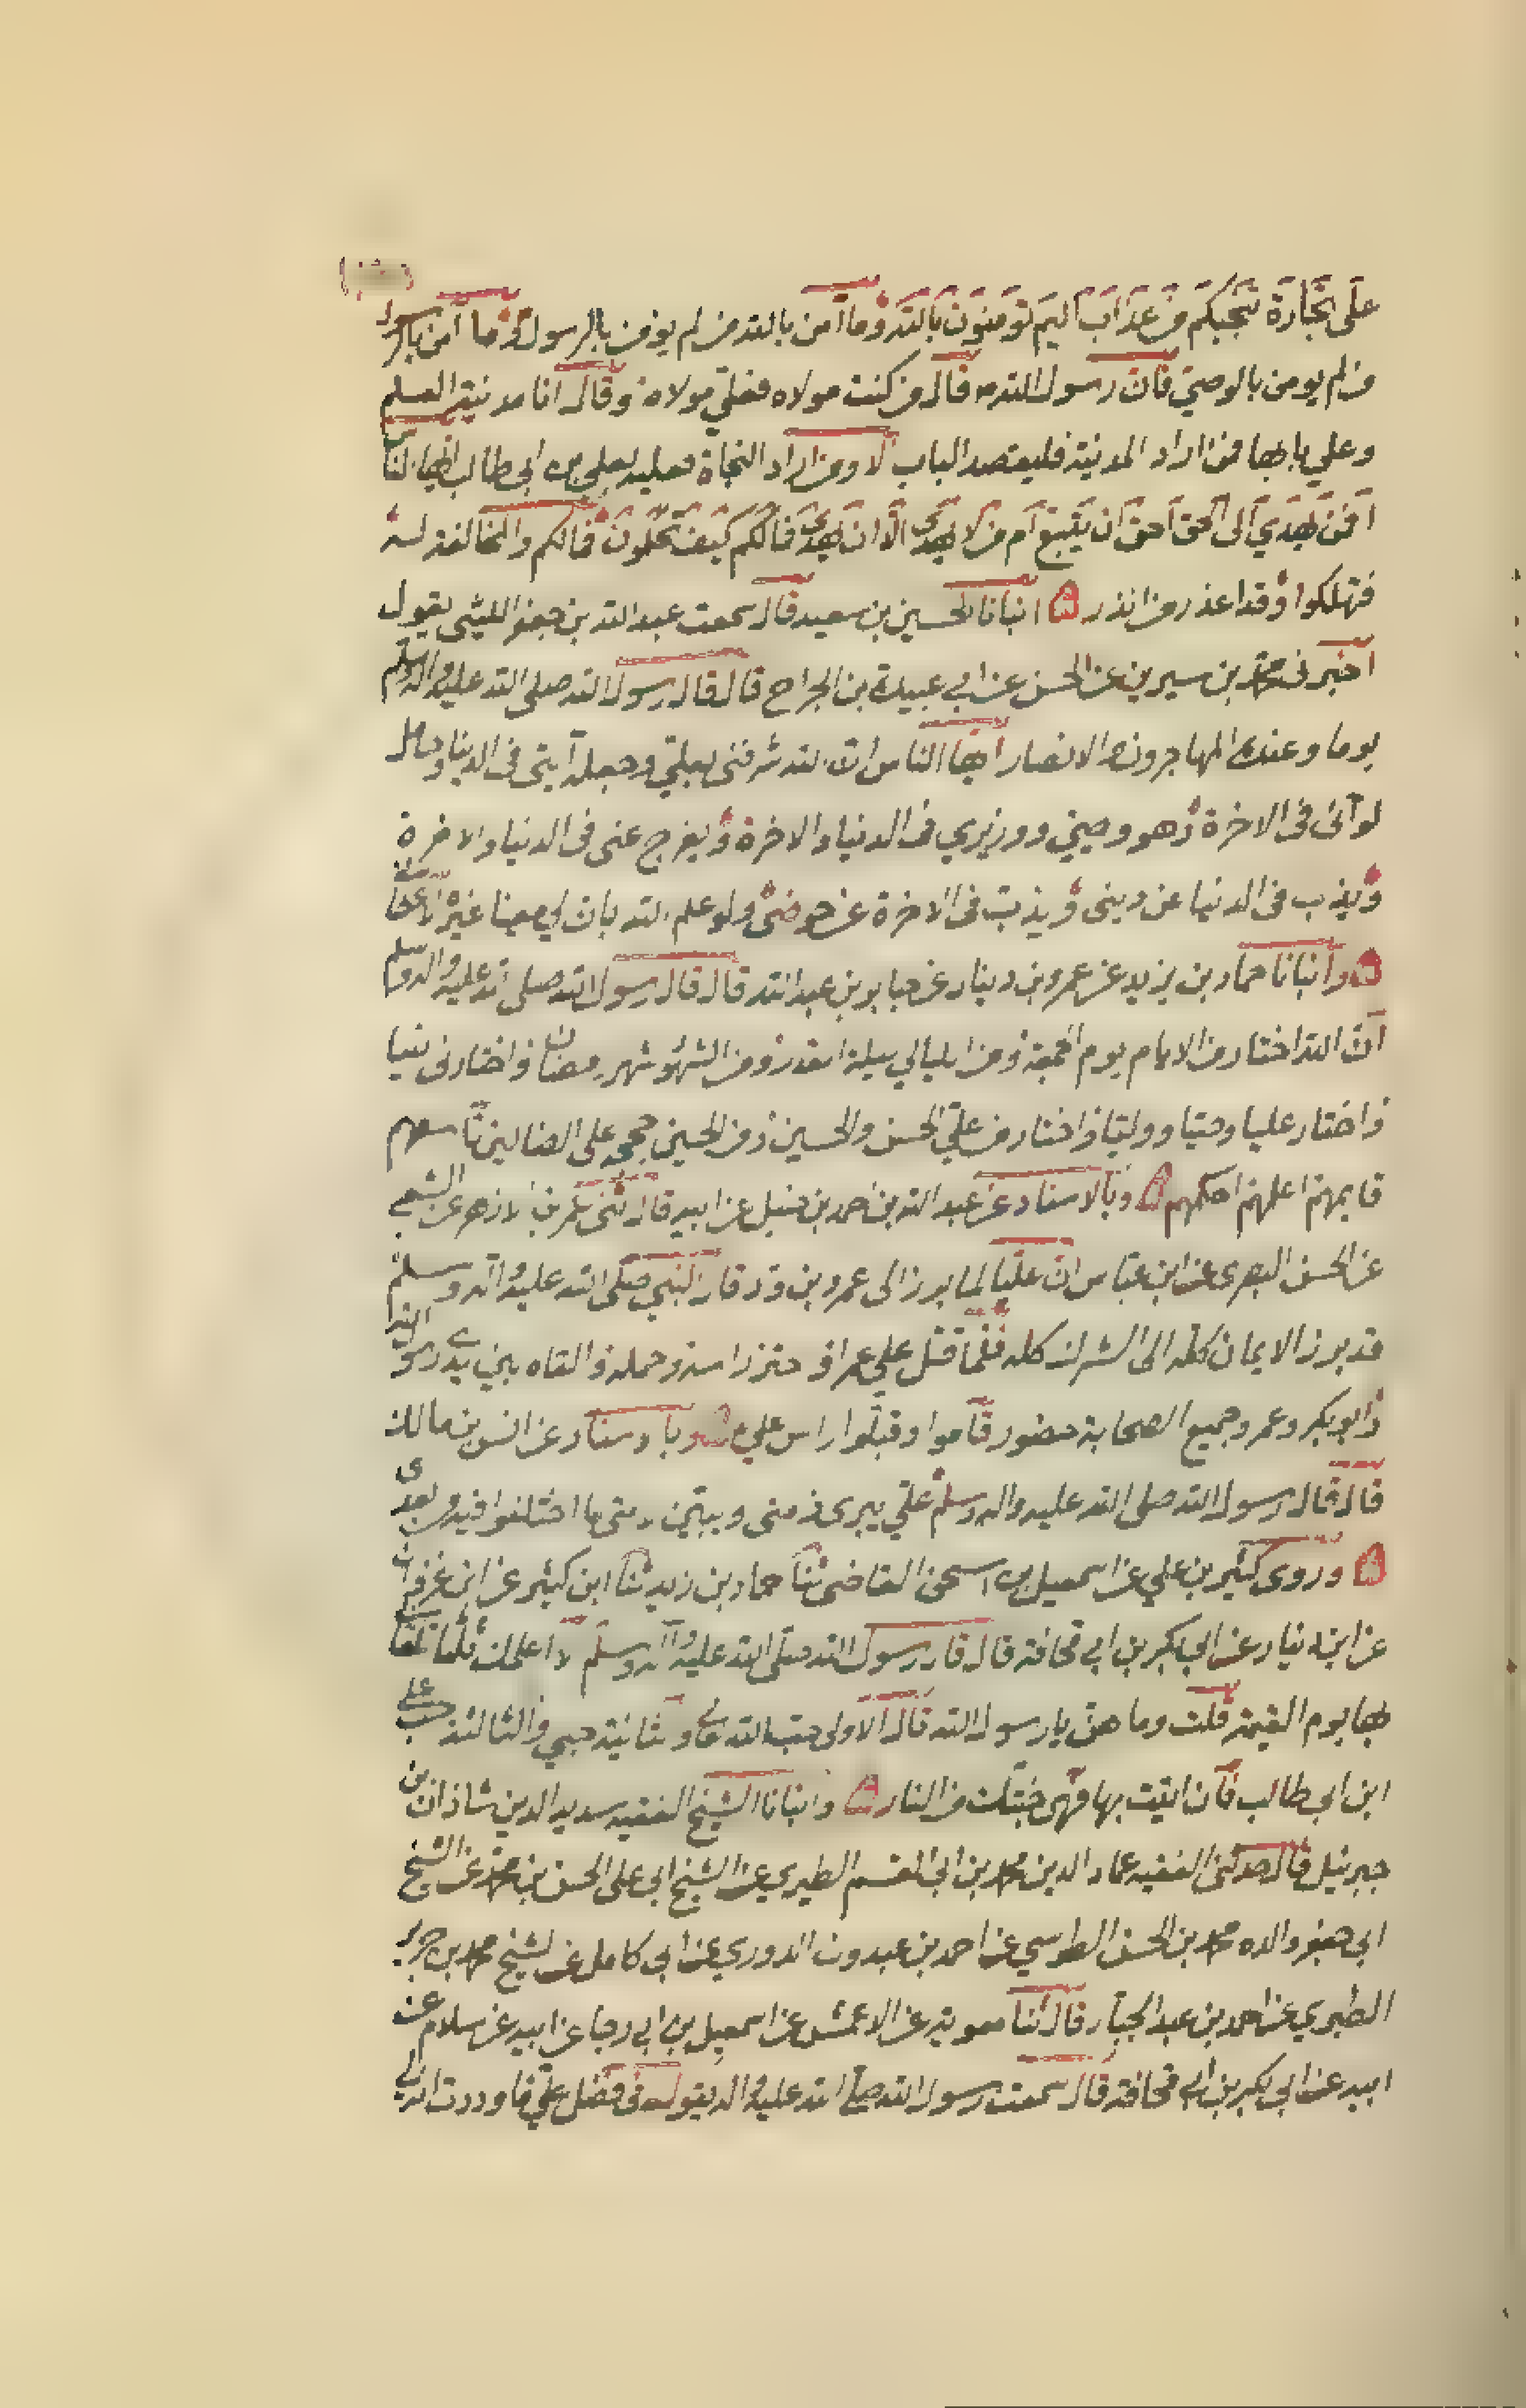 على تجارة تنجيكم من عذاب اليم تؤمنون بالله وما آمن بالله من لم يؤمن بالرسول وما آمن بالرسول
من لم يومن بالوصي فان رسول الله ص قال من كنت مولاه فعلي مولاه وقال انا مدينة العلم
وعلي بابها فمن اراد المدينة فليقصد الباب الا ومن اراد النجاة فعليه بعلي بن ابي طالب ايها الناس
افمن يهدي الى الحق احق ان يتبع ام من لا يهدي الا ان يهدى فما لكم كيف تحكمون فما لكم والمخالفة له
فتهلكوا وقد اعذر من انذر انبانا الحسين بن سعيد قال سمعت عبد الله بن جعفر الليثى يقول
اخبرنى محمد بن سيرين عن الحسن عن ابي عبيدة بن الجراح قال قال رسول الله صلى الله عليه واله وسلم
يوما وعنده المهاجرون والانصار ايها الناس ان الله شرفنى بعلي وجعله آيتى فى الدنيا وحامل
لوآئى فى الاخرة وهو وصيي ووزيري فى الدنيا والاخرة ويفرج عنى فى الدنيا والاخرة
ويذب فى الدنيا عن دينى ويذب فى الاخرة عن حوضى ولو علم الله بان لي معينا غيره لاعطا
وانبانا حماد بن يزيد عن عمرو بن دينار عن جابر بن عبد الله قال قال رسول الله صلى الله عليه واله وسلم
ان الله اختار من الايام يوم الجمعة ومن الليالي ليلة القدر ومن الشهور شهر رمضان واختارنى نبيا
واختار عليا وصيا ووليا واختار من علي الحسن والحسين ومن الحسين حججه على العالمين تاسعهم
قايمهم اعلمهم احكمهم وبالاسناد عن عبد الله بن احمد بن حنبل عن ابيه قال ثنى عمر بن الازهر عن الشعبي
عن الحسن البصرى عن ابن عباس ان عليا لما برز الى عمرو بن ود قال النبي صلى الله عليه وآله وسلم
قد برز الايمان كله الى الشرك كله فلما قتل علي عمرا واحتز راسه وحمله والقاه بين يدى رسول الله
وابو بكر وعمر وجميع الصحابة حضور قاموا وقبلوا راس علي ع وبالاسناد عن انس بن مالك
قال قال رسول الله صلى الله عليه واله وسلم علي يبرى ذمتى ويبين لامتى ما اختلفوا فيه بعدى
وروى كثير بن علي عن اسمعيل بن اسحق القاضى ثنا حماد بن زيد ثنا ابن كثير عن ابن عزوان
عن ابن دينار عن ابي بكر بن ابي قحافة قال قال رسول الله صلى الله عليه وآله وسلم لا اعلمك كلمات تلقا
بها يوم القيمة قلت وما هن يا رسول الله قال الاولى حب الله تعالى والثانية حبي والثالثة حب علي
ابن ابي طالب فان اتيت بها فهى جنتك من النار وانبانا الشيخ الفقيه سديد الدين شاذان بن
جبرئيل قال حدثنى الفقيه عماد الدين محمد بن ابي القسم الطبري عن الشيخ ابي على الحسن بن محمد عن الشيخ
ابي جعفر والده محمد بن الحسن الطوسي عن احمد بن عبدون الدوري عن ابي كامل عن الشيخ محمد بن جرير
الطبري عن احمد بن عبد الجبار قال ثنا معوية عن الاعمش عن اسمعيل بن ابي رجا عن ابيه عن سلام عن
ابيه عن ابي بكر بن ابي قحافة قال سمعت رسول الله صلى الله عليه واله يقول فى فضل علي ما وددت انه لي